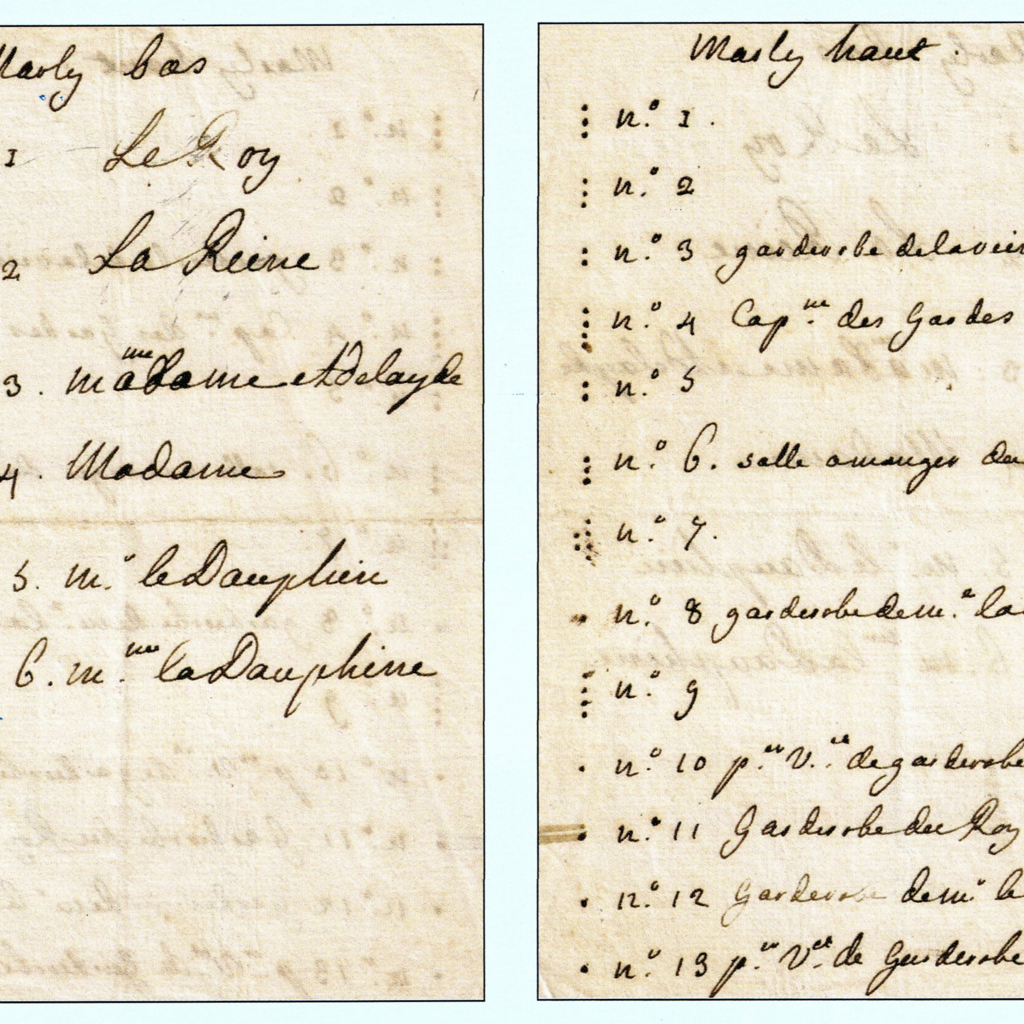 Marly bas
1 Le Roy
2 La Reine
3. madame Adelayde
4. Madame
5. m.r le Dauphin
6. m.me la Dauphine
Marly haut.
n.o 1.
n.o 2
n.o 3 garderobe de la rein
n.o 4 Cap.ne des Gardes
n.o 5
n.o 6. salle amanger du
n.o 7.
n.o 8 garderobe de m.e la
n.o 9
n.o 10 p.er V.et de garderobe
n.o 11 Garderobe du Roy
n.o 12 Garderobe de m.r le
n.o 13 p.er V.et de Garderobe